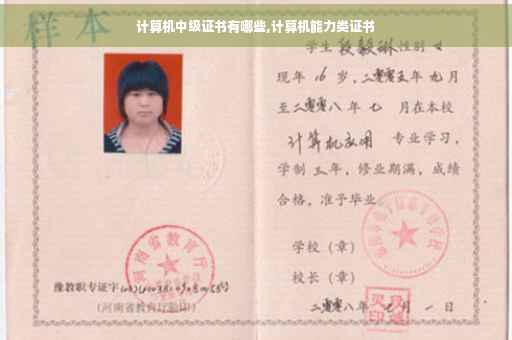 计算机中级证书有哪些,计算机能力类证书
样本
学生 段毅琳 性别 女
现年 16 岁，二零零五年 九 月
至二零零八年 七 月在本校
计算机应用 专业学习，
学制 三 年，修业期满，成绩
合格，准予毕业
学校（章）
校长（章）
二零零八年 七 月 一 日
河南省教育厅
豫教职专证字
(河南省教育厅验印)